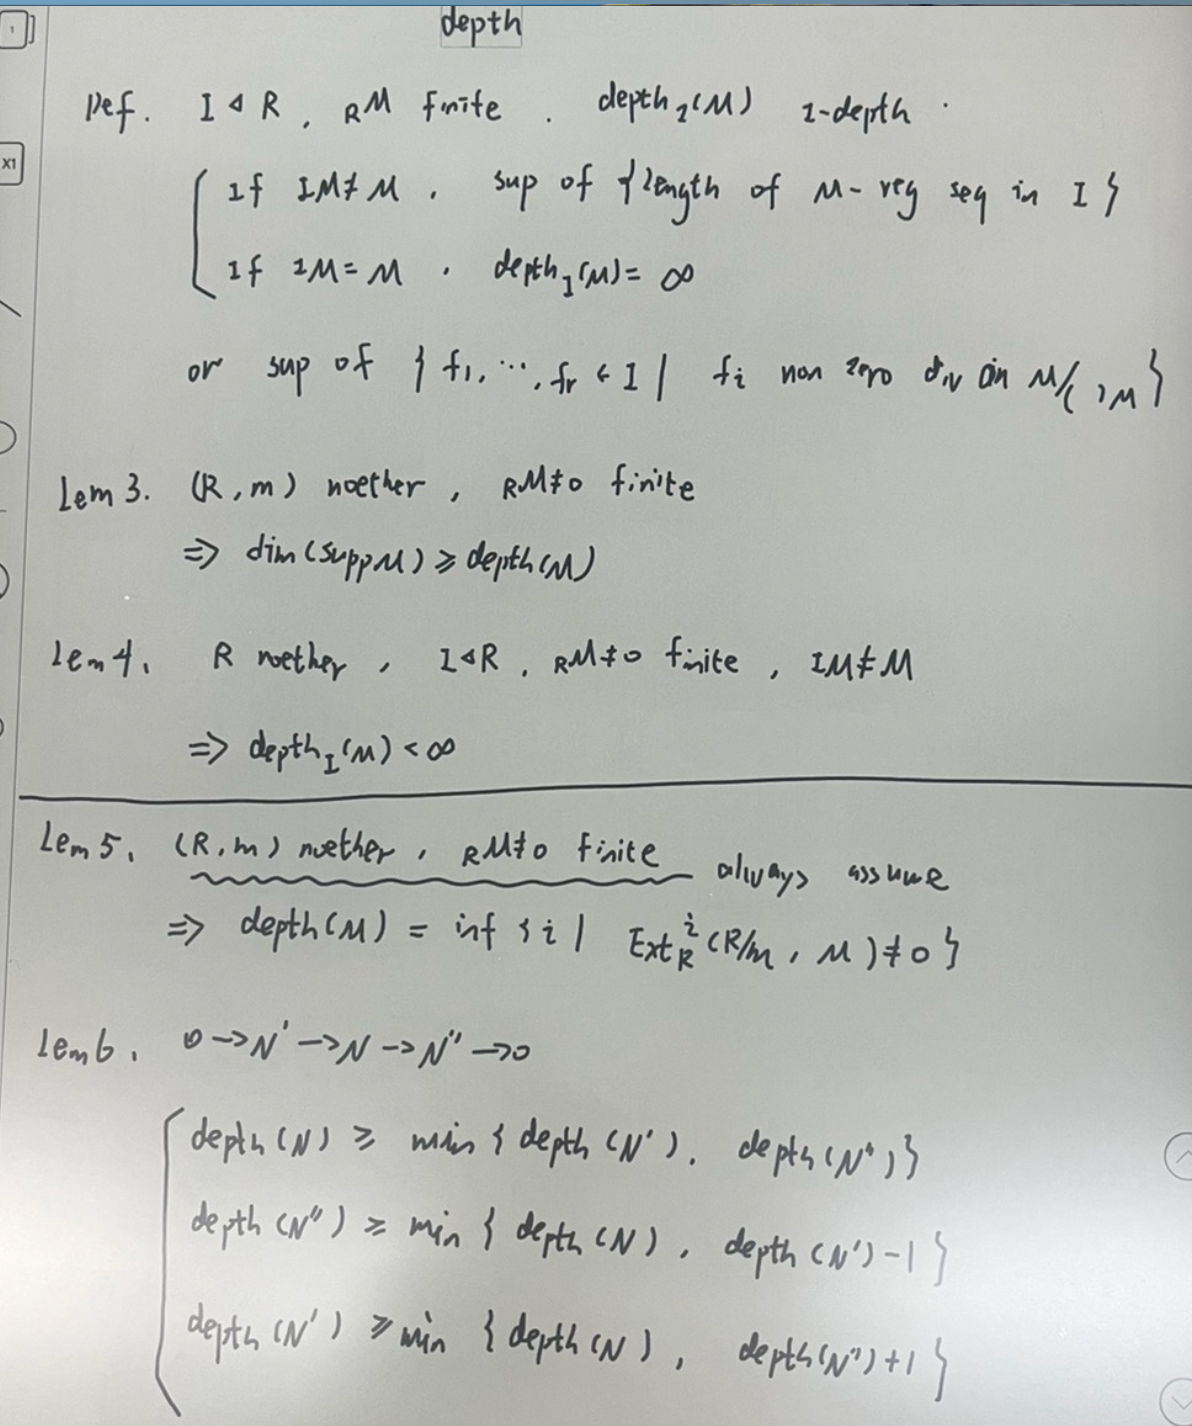 depth
Def. I ◁ R, _R M finite. depth_I(M) I-depth.
If IM≠M, sup of {length of M-reg seq in I}
If IM=M, depth_I(M)=∞
or sup of {f1,⋯,fr ∈ I | fi non zero div on M/( )M}
Lem 3. (R,m) noether, _R M≠0 finite
⇒ dim(supp M) ≥ depth(M)
Lem 4. R noether, I◁R, _R M≠0 finite, IM≠M
⇒ depth_I(M) < ∞
Lem 5. (R,m) noether, _R M≠0 finite always assume
⇒ depth(M) = inf {i | Ext^i_R(R/m, M)≠0}
Lem 6. 0→N'→N→N''→0
depth(N) ≥ min{depth(N'), depth(N'')}
depth(N'') ≥ min{depth(N), depth(N')-1}
depth(N') ≥ min{depth(N), depth(N'')+1}